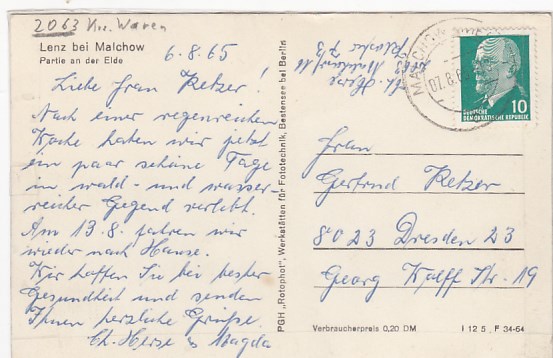 2063 Kr. Waren
Lenz bei Malchow
Partie an der Elde
6.8.65
Liebe Frau Retzer!
Nach einer regenreichen
Woche haben wir jetzt
ein paar schöne Tage
in wald- und wasser-
reicher Gegend verlebt.
Am 13.8. fahren wir
wieder nach Hause.
Wir hoffen Sie bei bester
Gesundheit und senden
Ihnen herzliche Grüße.
Ch. Herse u Magda
PGH „Rotophot", Werkstätten für Fototechnik, Bestensee bei Berlin
2063 Malchow
MALCHOW
07.8.65
10
DEUTSCHE
DEMOKRATISCHE REPUBLIK
Frau
Gertrud Retzer
8023 Dresden 23
Georg Wolff Str. 19
Verbraucherpreis 0,20 DM
I 12 5 , F 34-64